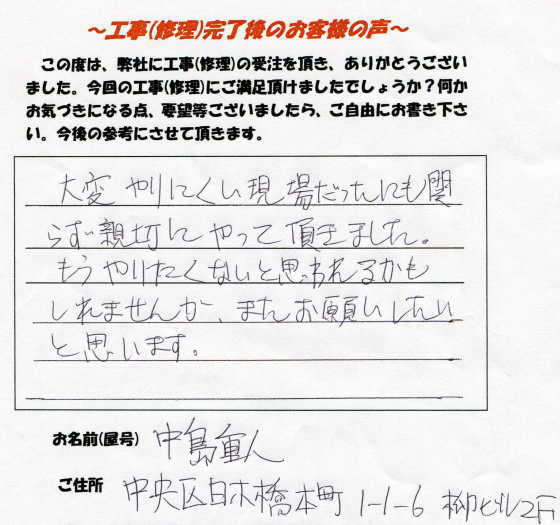 ~工事(修理)完了後のお客様の声~
この度は、弊社に工事(修理)の受注を頂き、ありがとうござい
ました。今回の工事(修理)にご満足頂けましたでしょうか?何か
お気づきになる点、要望等ございましたら、ご自由にお書き下さ
い。今後の参考にさせて頂きます。
大変やりにくい現場だったにも関
らず親切にやって頂きました。
もうやりたくないと思われるかも
しれませんが、またお願いしたい
と思います。
お名前(屋号) 中島重人
ご住所 中央区日本橋本町 1-1-6 柳ビル2F